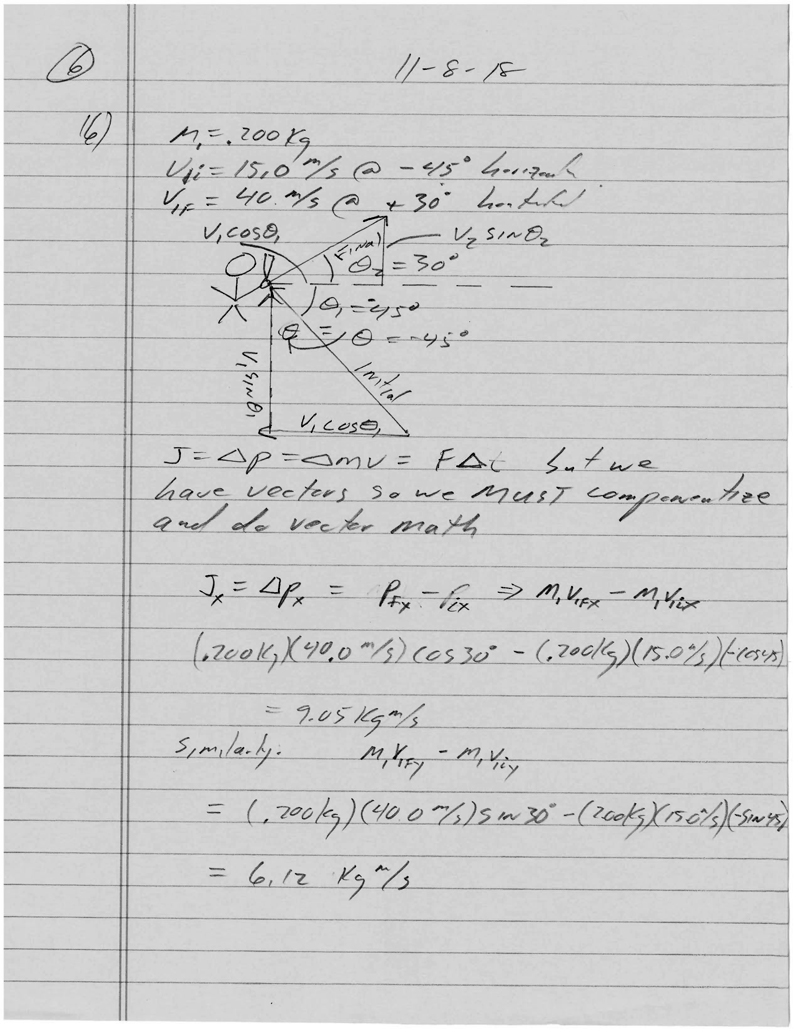 6
11-8-18
16)
M₁ = .200 Kg
V₁i = 15.0 m/s @ -45° horizontal
V₁F = 40. m/s @ +30° horizontal
V₁cosθ₁
Final
V₂ sinθ₂
θ₂ = 30°
θ₁ = -45°
θ = θ = -45°
V₁ sinθ₁
Initial
V₁ cosθ₁
J = Δp = Δmv = FΔt but we
have vectors so we MUST componentize
and do vector math
Jx = Δpx = PFx - Pix ⇒ M₁V₁Fx - M₁V₁ix
(.200Kg)(40.0 m/s) cos30° - (.200Kg)(15.0 m/s)(-cos45)
= 9.05 Kg m/s
Similarly: M₁V₁Fy - M₁V₁iy
= (.200kg)(40.0 m/s) sin30° - (.200Kg)(15.0 m/s)(-sin45)
= 6.12 Kg m/s